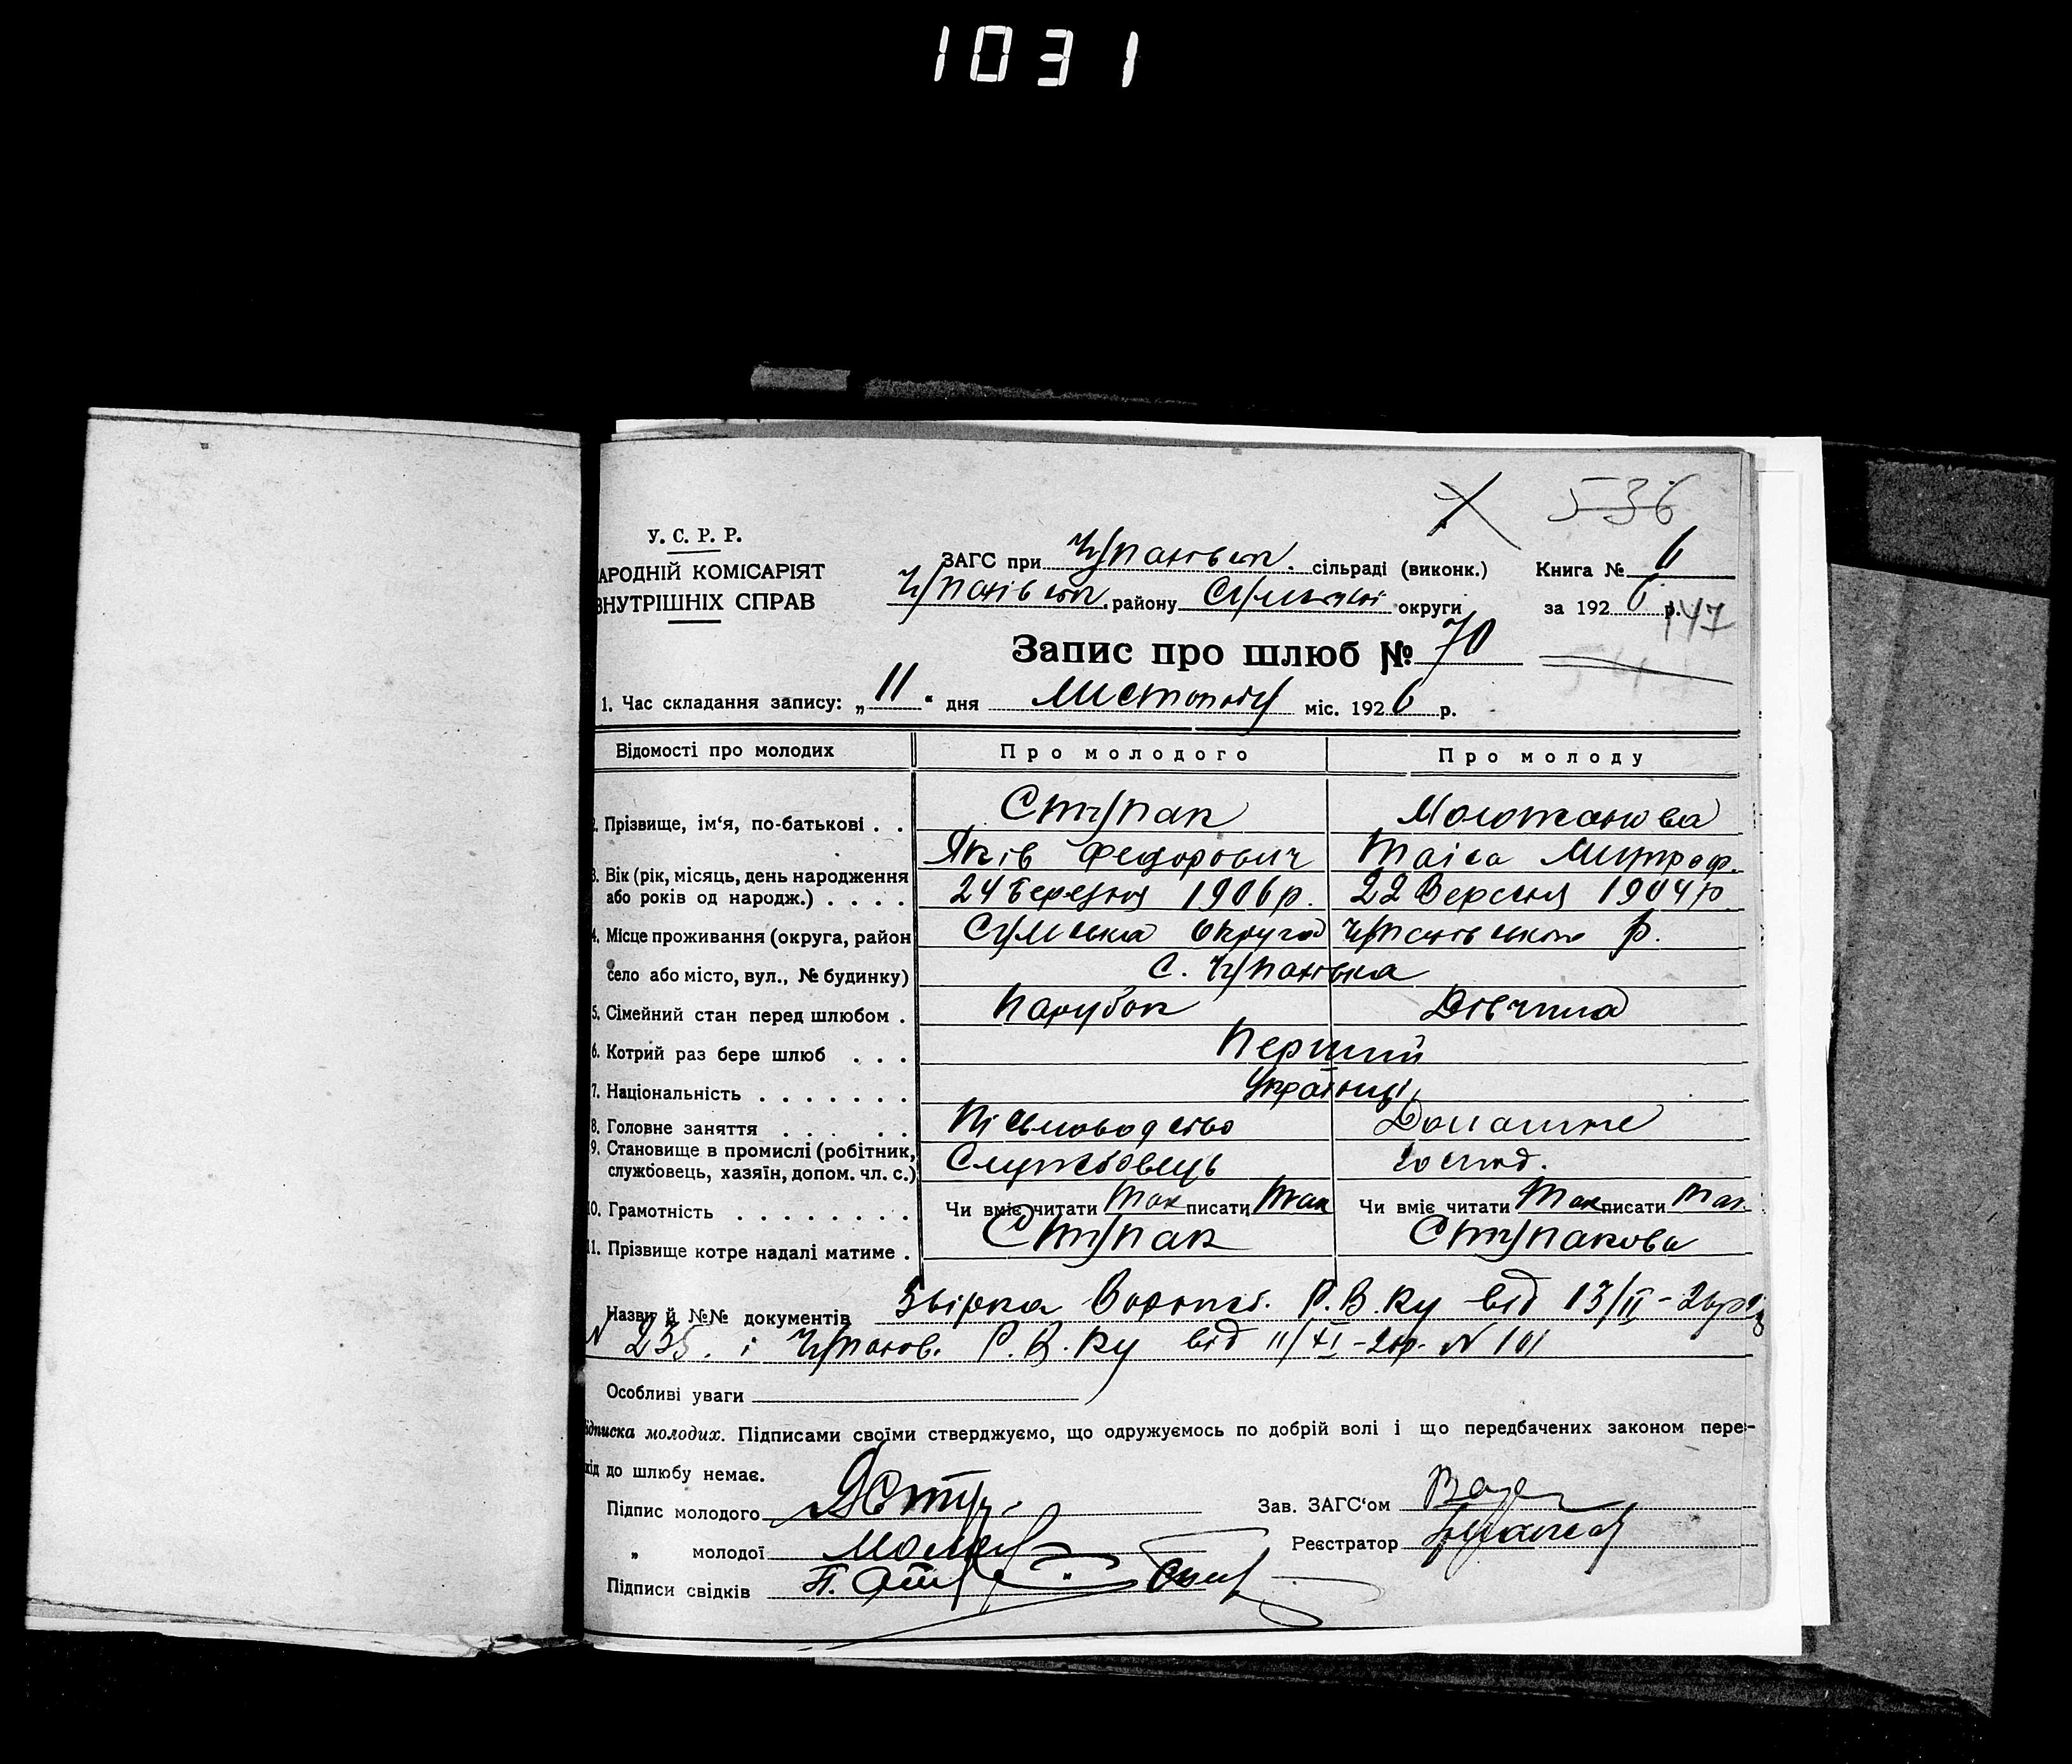 1031
536
У. С. Р. Р.
АРОДНІЙ КОМІСАРІЯТ
ВНУТРІШНІХ СПРАВ
ЗАГС при Чупахівськ. сільраді (виконк.) Книга №
Чупахівськ. району Сумської округи за 1926 р.
147
Запис про шлюб № 70
1. Час складання запису: „11“ дня Листопаду міс. 1926 р.
Відомості про молодих Про молодого Про молоду
2. Прізвище, ім‘я, по-батькові . . Ступак
Яків Федорович Таїса Митроф.
3. Вік (рік, місяць, день народження
або років од народж.) . . . . 24 Березня 1906 р. 22 Вересня 1904 р.
4. Місце проживання (округа, район Сумська округа Чупахівського р.
село або місто, вул., № будинку) с. Чупахівка
5. Сімейний стан перед шлюбом . Парубок Дівчина
6. Котрий раз бере шлюб . . . Перший
7. Національність . . . . . . . Українці
8. Головне заняття . . . . . . Письмоводство Домашнє
9. Становище в промислі (робітник,
службовець, хазяїн, допом. чл. с.) Службовець господ.
10. Грамотність . . . . . . . . Чи вміє читати Так писати Так Чи вміє читати Так писати Так
11. Прізвище котре надалі матиме . Ступак Ступакова
Назви й №№ документів Р.В.Ку від 13/II-26р.
N 235. і Чупахов. Р.В.Ку від 11/XI-26р. N 101
Особливі уваги
ідписка молодих. Підписами своїми стверджуємо, що одружуємось по добрій волі і що передбачених законом пере-
кід до шлюбу немає.
Підпис молодого Зав. ЗАГС‘ом
„ молодої Реєстратор
Підписи свідків